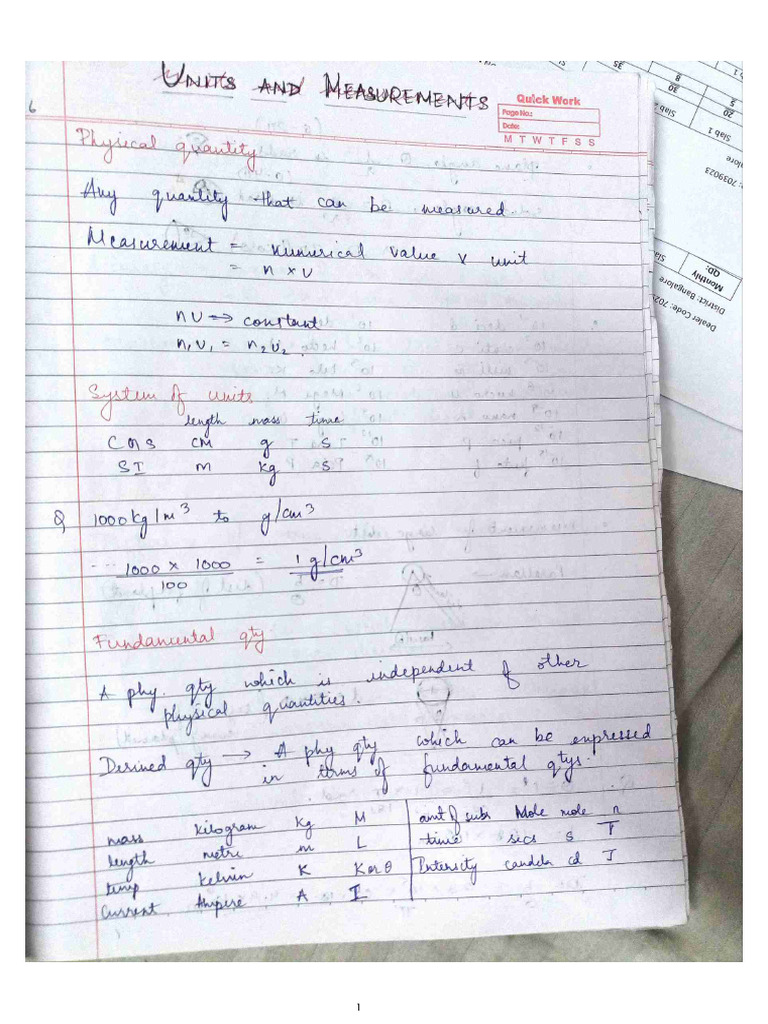 UNITS AND MEASUREMENTS
Quick Work
Page No.:
Date:
M T W T F S S
6
Physical quantity
Any quantity that can be measured.
Measurement = Numerical value x unit
= n x u
nu => constant
n₁u₁ = n₂u₂.
System of units
length mass time
CGS CM g S
SI m kg S
Q 1000 kg/m³ to g/cm³
1000 x 1000 = 1 g/cm³
100
Fundamental qty
A phy. qty which is independent of other
physical quantities.
Derined qty → A phy qty which can be expressed
in terms of fundamental qtys.
mass kilogram kg M
length metre m L
temp Kelvin K K or θ
Current Ampere A I
amt of subs Mole mole n
time secs S T
Intensity candela cd J
Slab 1
20
5
30
8
35
: 7039023
Monthly
QD:
District: Bangalore
Dealer Code: 702
1